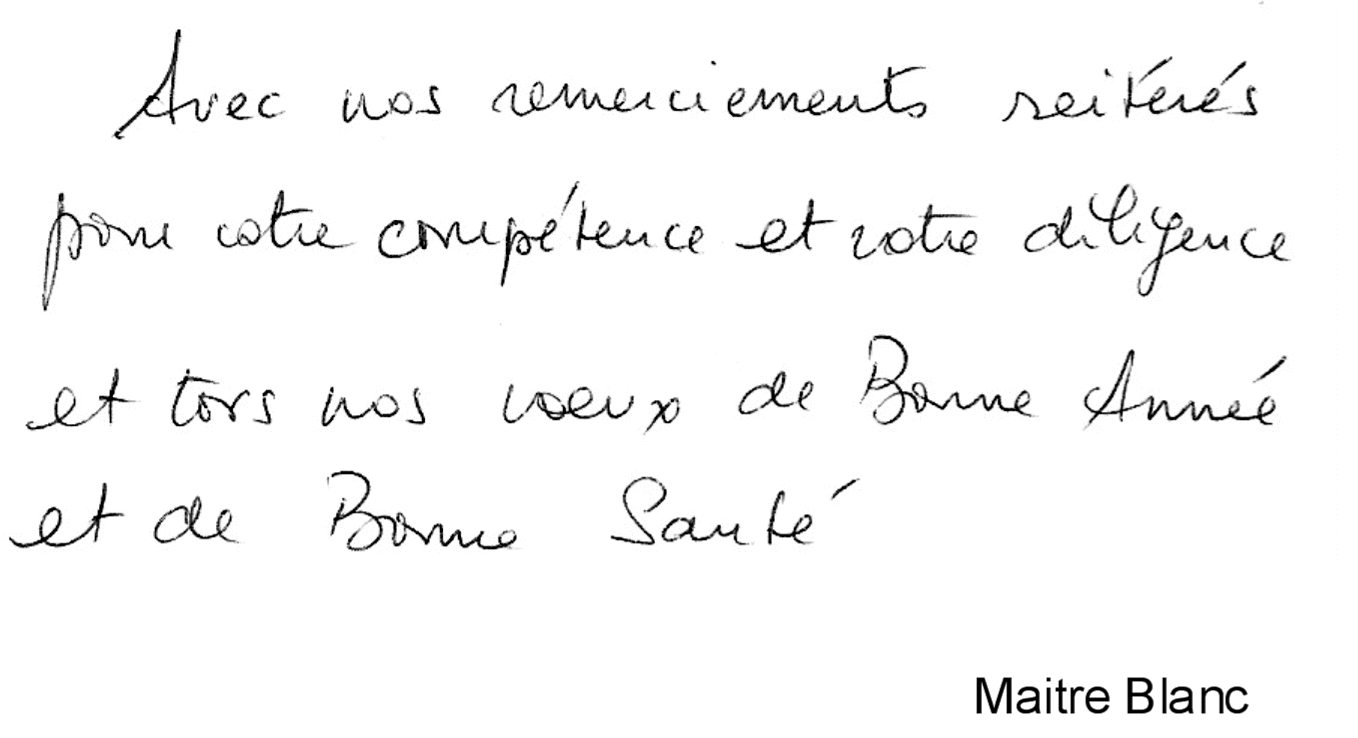 Avec nos remerciements reitérés
pour votre compétence et votre diligence
et tous nos voeux de Bonne Année
et de Bonne Santé
Maitre Blanc